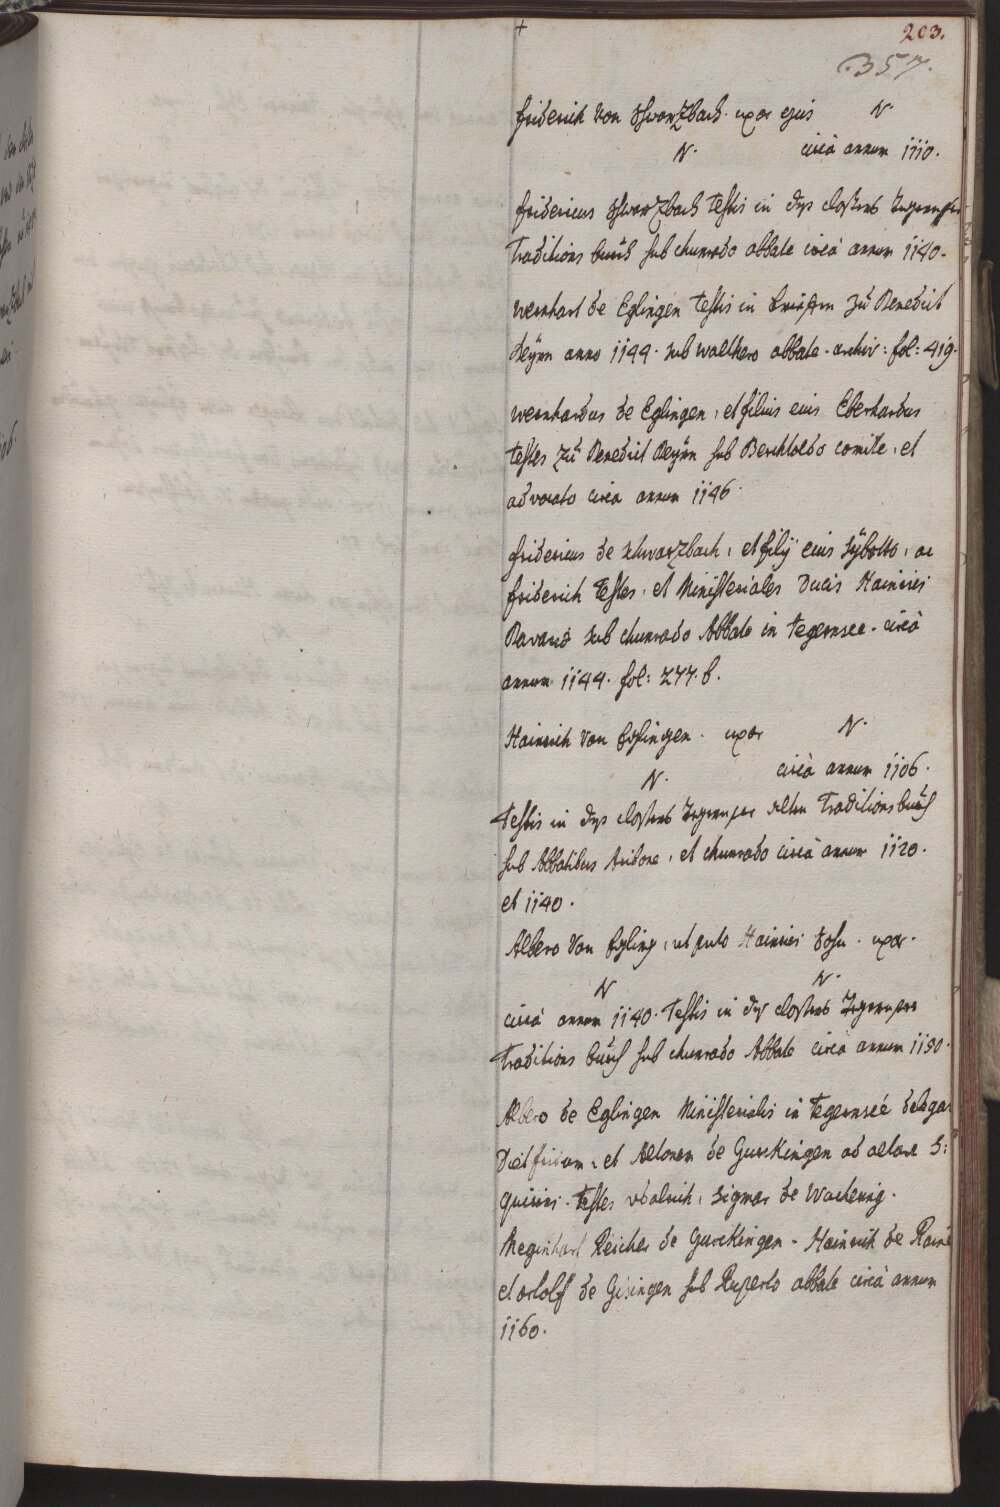 203.
357.
friderich von Schwarzbach. uxor ejus N.
N. circà annum 1110.
fridericus Schwarzbach testis in dess closters Tegernsee
Traditions buech sub chunrado abbate circà annum 1140.
wernhart de Eglingen testis in zu Benedict
Beÿrn anno 1144. sub walthero abbate. archiv: fol: 419.
wernhardus de Eglingen, et filius eius Eberhardus
testes zu Benedict Beÿrn sub Berchtoldo comite, et
advocato circa annum 1146.
fridericus de schwarzbach, et filÿ eius Sÿbotto, ac
friderich testes, et Ministeriales Ducis Hainrici
Bavariæ sub chunrado Abbate in tegernsee. circà
annum 1144. fol: 277. b.
Hainrich von Eglingen. uxor N.
N. circà annum 1106.
Testis in dess closters Tegernsee alten Traditionsbuech
sub Abbatibus Aribone, et chunrado circà annum 1120.
et 1140.
Albero von Egling, ut puto Hainrici Sohn. uxor.
N N.
circà annum 1140. Testis in dess closters Tegernsee
Traditions buech sub chunrado Abbate circà annum 1150.
Albero de Eglingen Ministerialis in Tegernseé delegat
Dietfridum, et Altonem de Gurckingen ad altare S:
quirini. testes vdalrich, Sigmar de Wachering.
Meginhart Reicher de Gurckingen. Hainrich de Raine
et ortolff de Gisingen sub Ruperto abbate circà annum
1160.